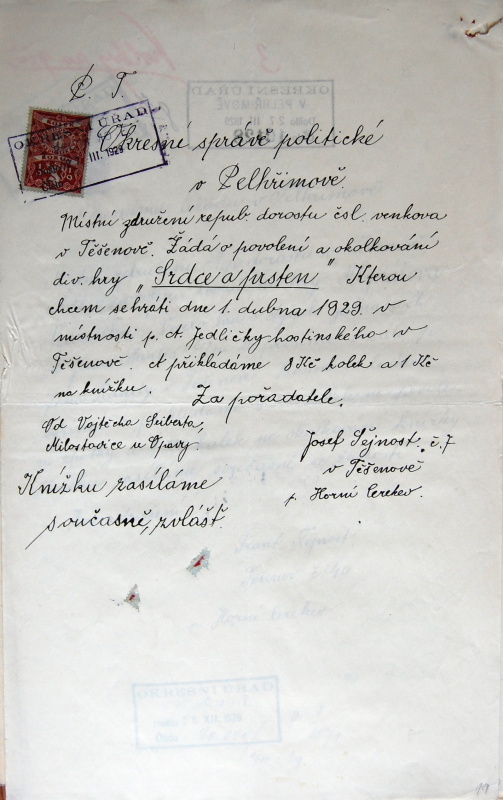 P. T.
Okresní správě politické
v Pelhřimově.
Místní združení repub. dorostu čsl. venkova
v Těšenově. Žádá o povolení a okolkování
div. hry „Srdce a prsten" Kterou
chcem sehráti dne 1. dubna 1929. v
místnosti p. A. Jedličky hostinského v
Těšenově. A přikládáme 8 Kč kolek a 1 Kč
na knížku. Za pořadatele.
Od Vojtěcha Seiberta,
Milostavice u Opavy.
Josef Sejnost. č. 7
v Těšenově
p. Horní Cerekev.
Knížku zasíláme
současně, zvlášť.
OKRESNÍ ÚŘAD
III. 1929
OKRESNÍ ÚŘAD
V PELHŘIMOVĚ
3
Horní Cerekev
OKRESNÍ ÚŘAD
19